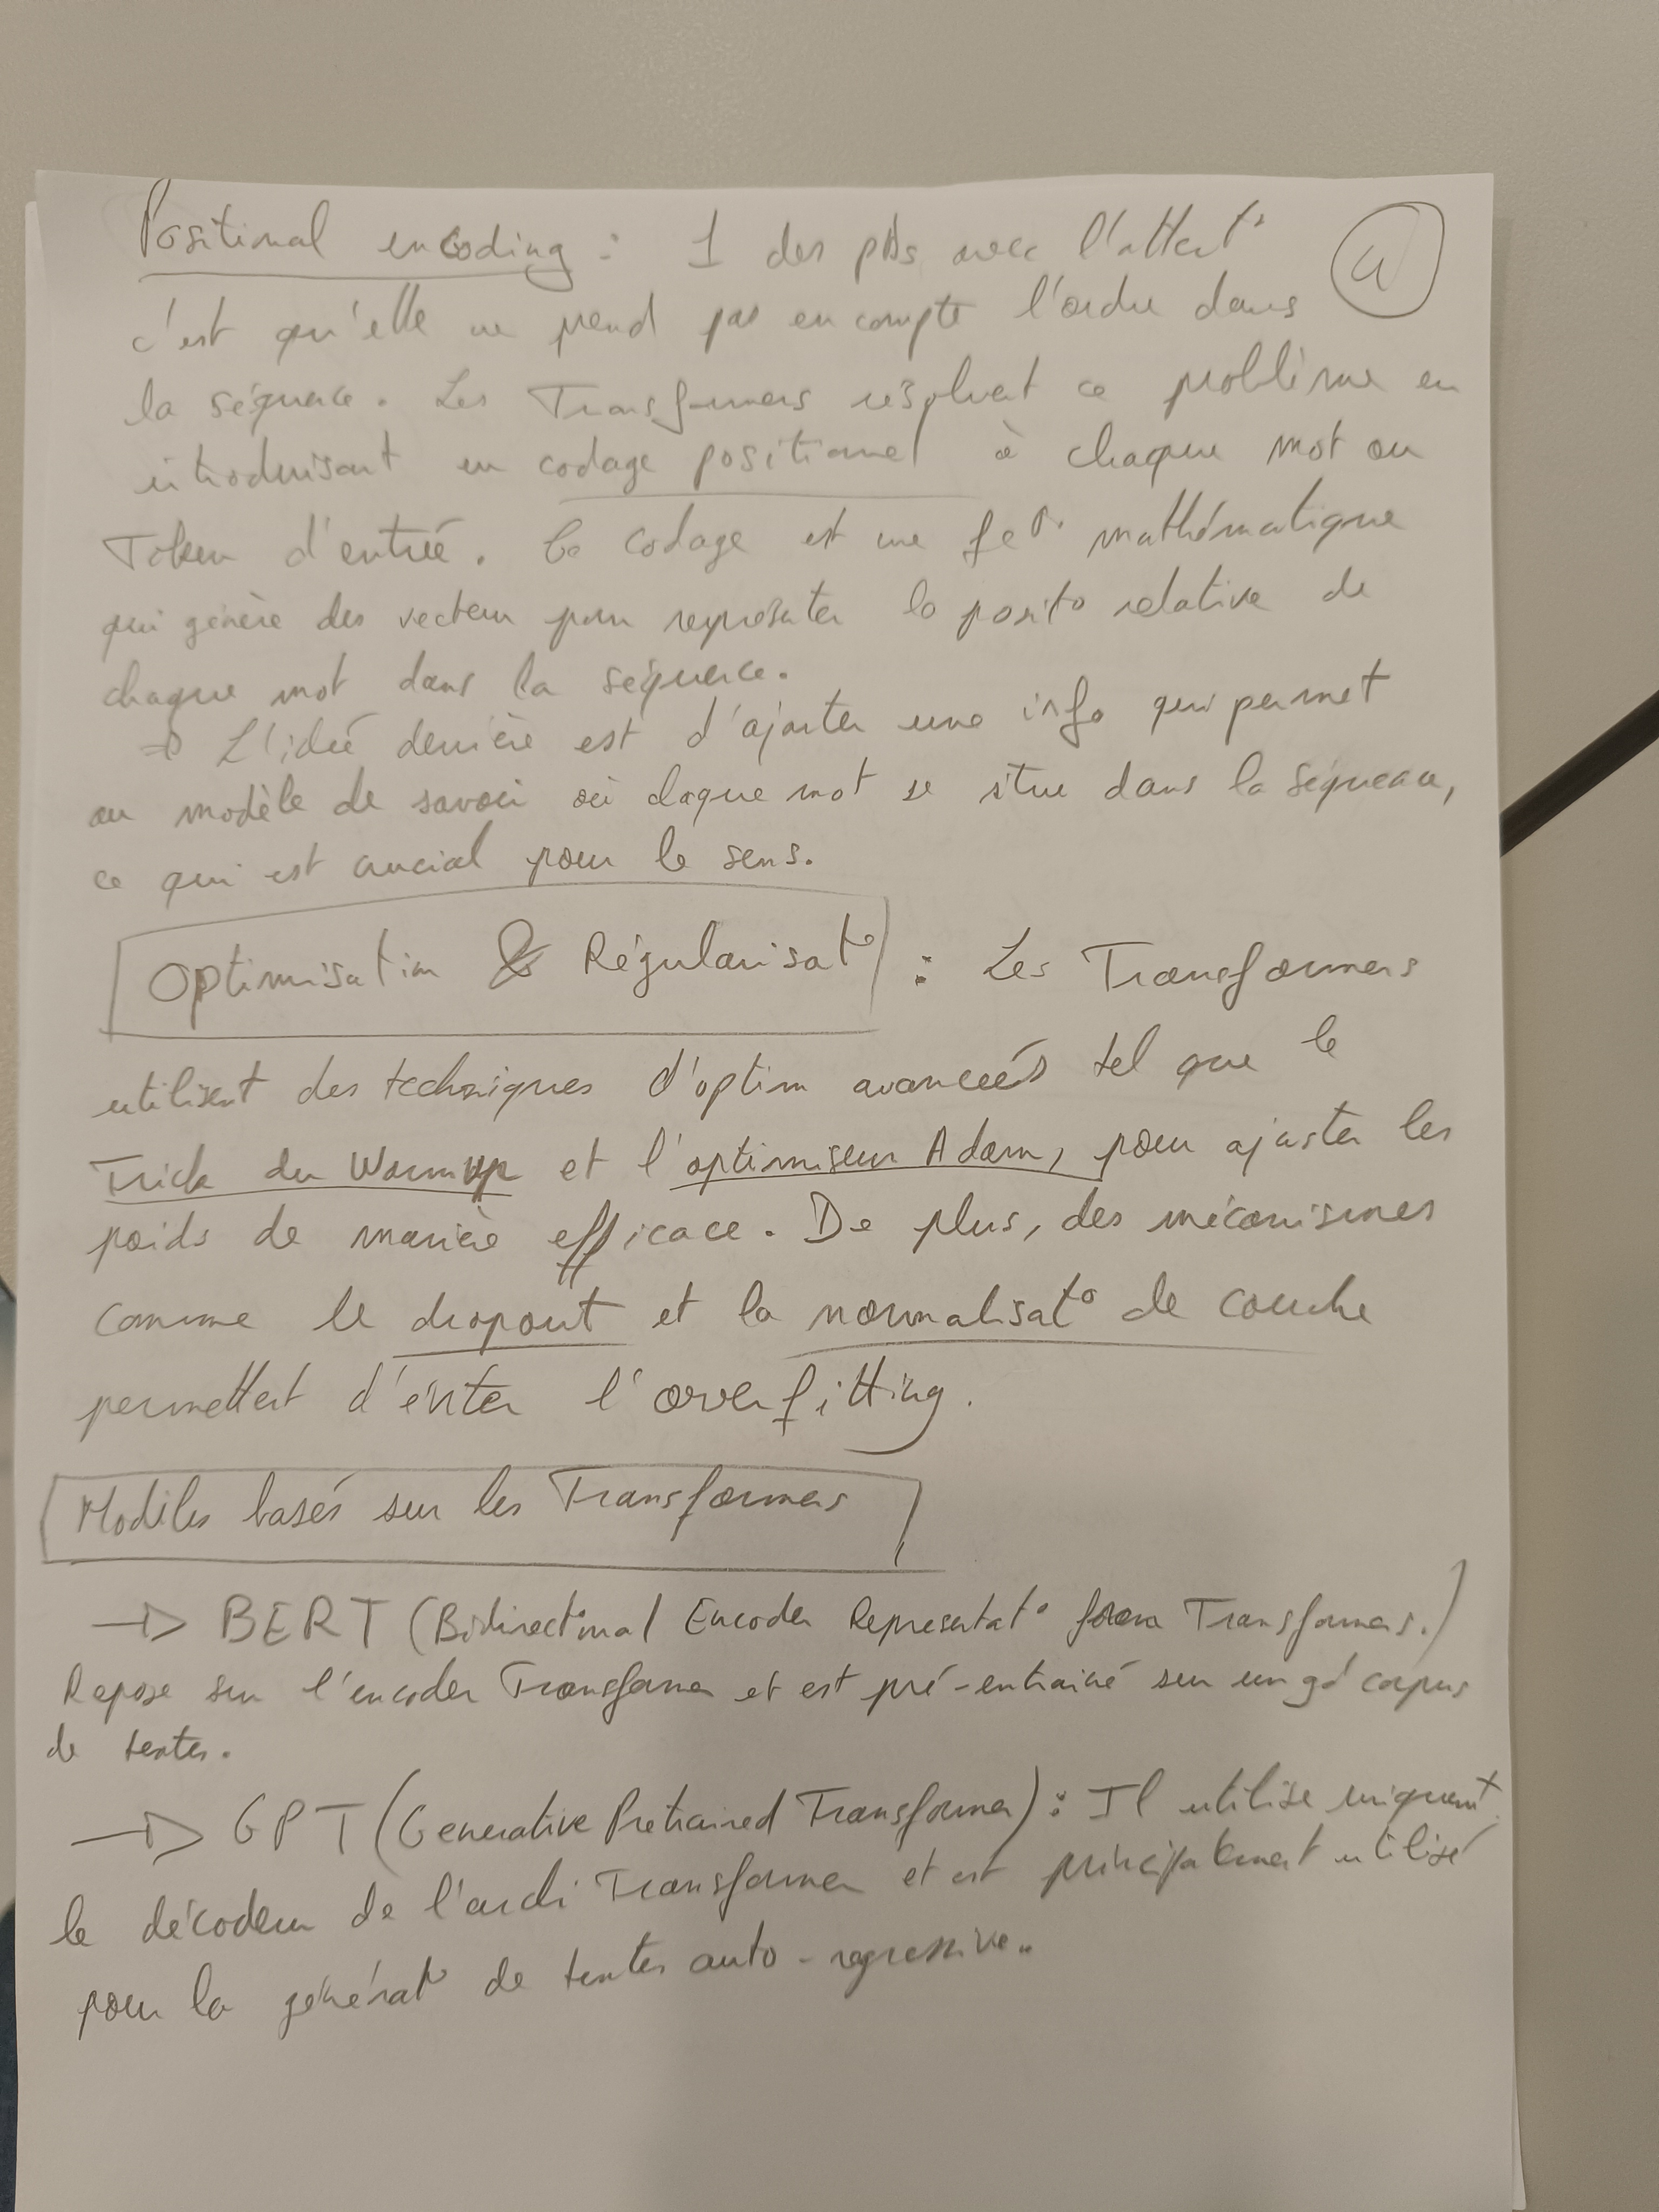 Positional encoding : 1 des pbs avec l'attent°
4
c'est qu'elle ne prend pas en compte l'ordre dans
la séquence. Les Transformers résolvent ce problème en
introduisant un codage positionnel à chaque mot ou
Token d'entrée. Ce codage est une fc° mathématique
qui génère des vecteur pour représenter la posit° relative de
chaque mot dans la séquence.
⇒ L'idée derrière est d'ajouter une info qui permet
au modèle de savoir où chaque mot se situe dans la séquence,
ce qui est crucial pour le sens.
Optimisation & Régularisat° : Les Transformers
utilisent des techniques d'optim avancées tel que le
Trick du Warmup et l'optimiseur Adam, pour ajuster les
poids de manière efficace. De plus, des mécanismes
comme le dropout et la normalisat° de couche
permettent d'éviter l'overfitting.
Modèles basés sur les Transformers
→ BERT (Bidirectional Encoder Representat° from Transformers.)
Repose sur l'encoder Transformer et est pré-entrainé sur un gd corpus
de textes.
→ GPT (Generative Pretrained Transformer) : Il utilise uniquemt
le décodeur de l'archi Transformer et est principalement utilisé
pour la générat° de textes auto-regressive..